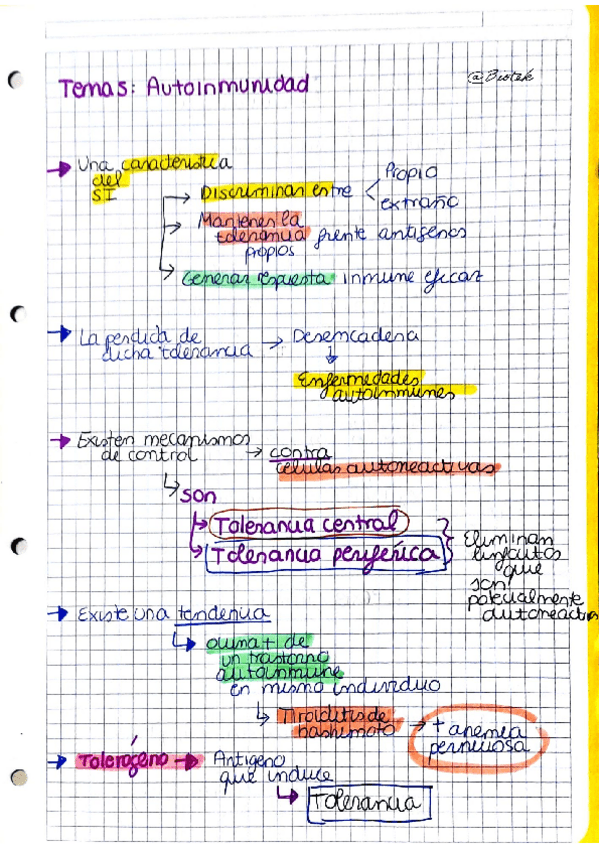 Temas: Autoinmunidad
@Biotek
Una característica
del
SI
Discriminan entre
Propio
extraño
Mantener la
tolerancia frente antigenos
propios
Generar respuesta inmune eficaz
La perdida de
dicha tolerancia
Desemcadena
Enfermedades
autoinmunes
Existen mecanismos
de control
contra
celulas autoreactivas
son
Tolerancia central
Tolerancia periferica
Eliminan
linfocitos
que
son
potecialmente
autoreactivo
Existe una tendencia
de
un trastorno
autoinmune
en mismo individuo
Tiroiditis de
hashimoto
+ anemia
perniciosa
Tolerógeno
Antigeno
que induce
Tolerancia